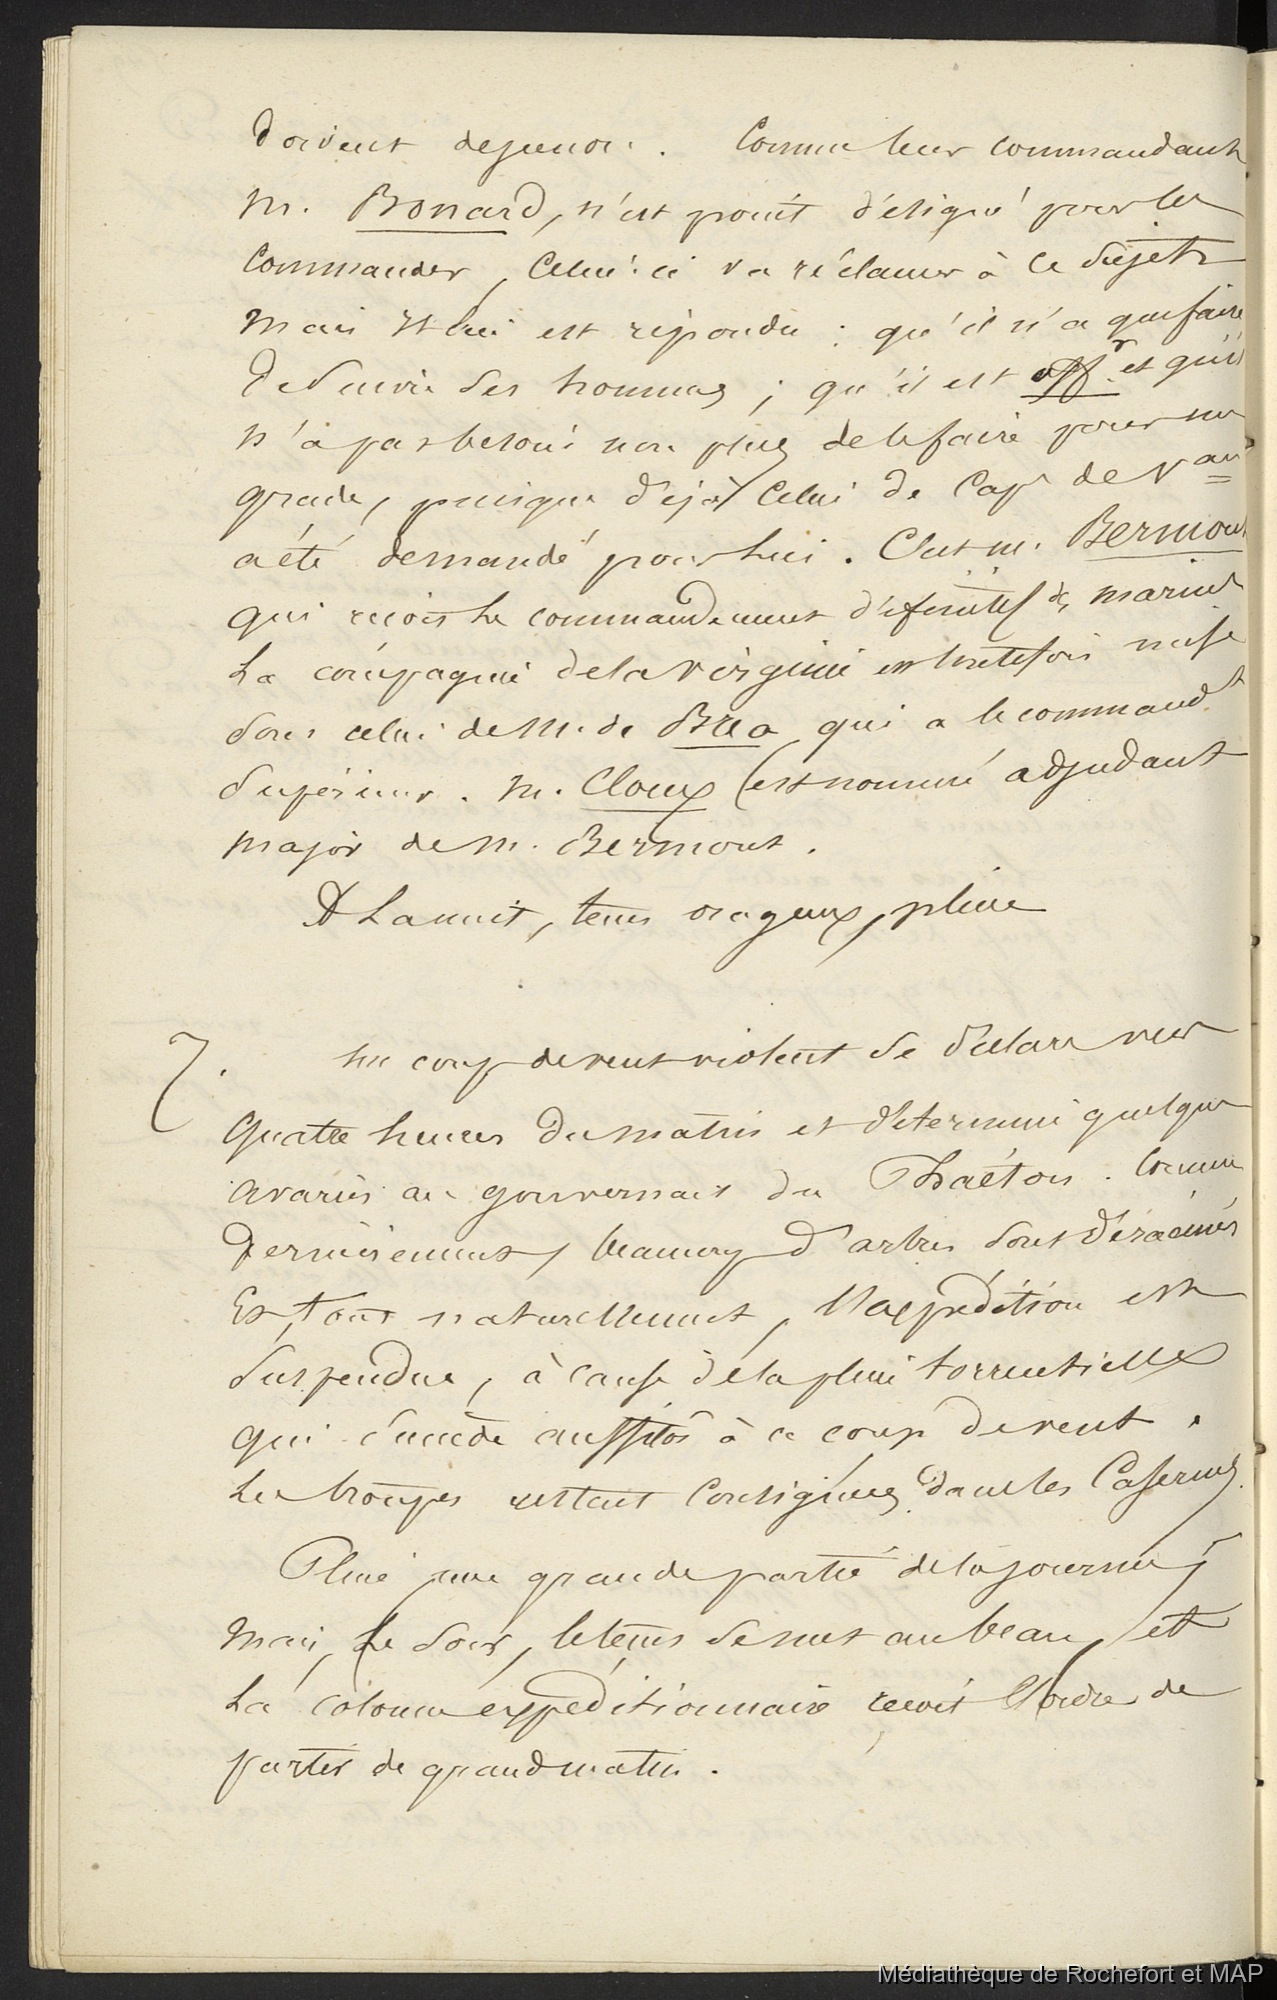 doivent dépendre. Comme leur commandant
M. Bonard, n'est point désigné pour les
commander, celui-ci va réclamer à ce sujet
mais il lui est répondu : qu'il n'a que faire
de suivre ses hommes ; qu'il est offr et qu'il
n'a pas besoin non plus de le faire pour un
grade, puisque déjà celui de Cap. de Vau
a été demandé pour lui. C'est m. Bermont
qui reçoit le commandement définitif des marins
La compagnie de la Virginie est toutefois mise
sous celui de M. de Bréa qui a le command.t
supérieur. M. Cloux est nommé adjudant
major de M. Bermont.
La nuit, tems orageux, pluie
7. Un coup de vent violent se déclare vers
quatre heures du matin et détermine quelques
avaries au gouvernail du Phaéton. Comme
dernièrement, beaucoup d'arbres sont déracinés
Et, tout naturellement, l'expédition est
suspendue, à cause de la pluie torrentielle
qui succède aussitôt à ce coup de vent.
Les troupes restent consignées dans les Casernes.
Pluie une grande partie de la journée ;
Mais, le soir, le tems se met au beau, et
La colonne expéditionnaire reçoit l'ordre de
partir de grand matin.
Médiathèque de Rochefort et MAP